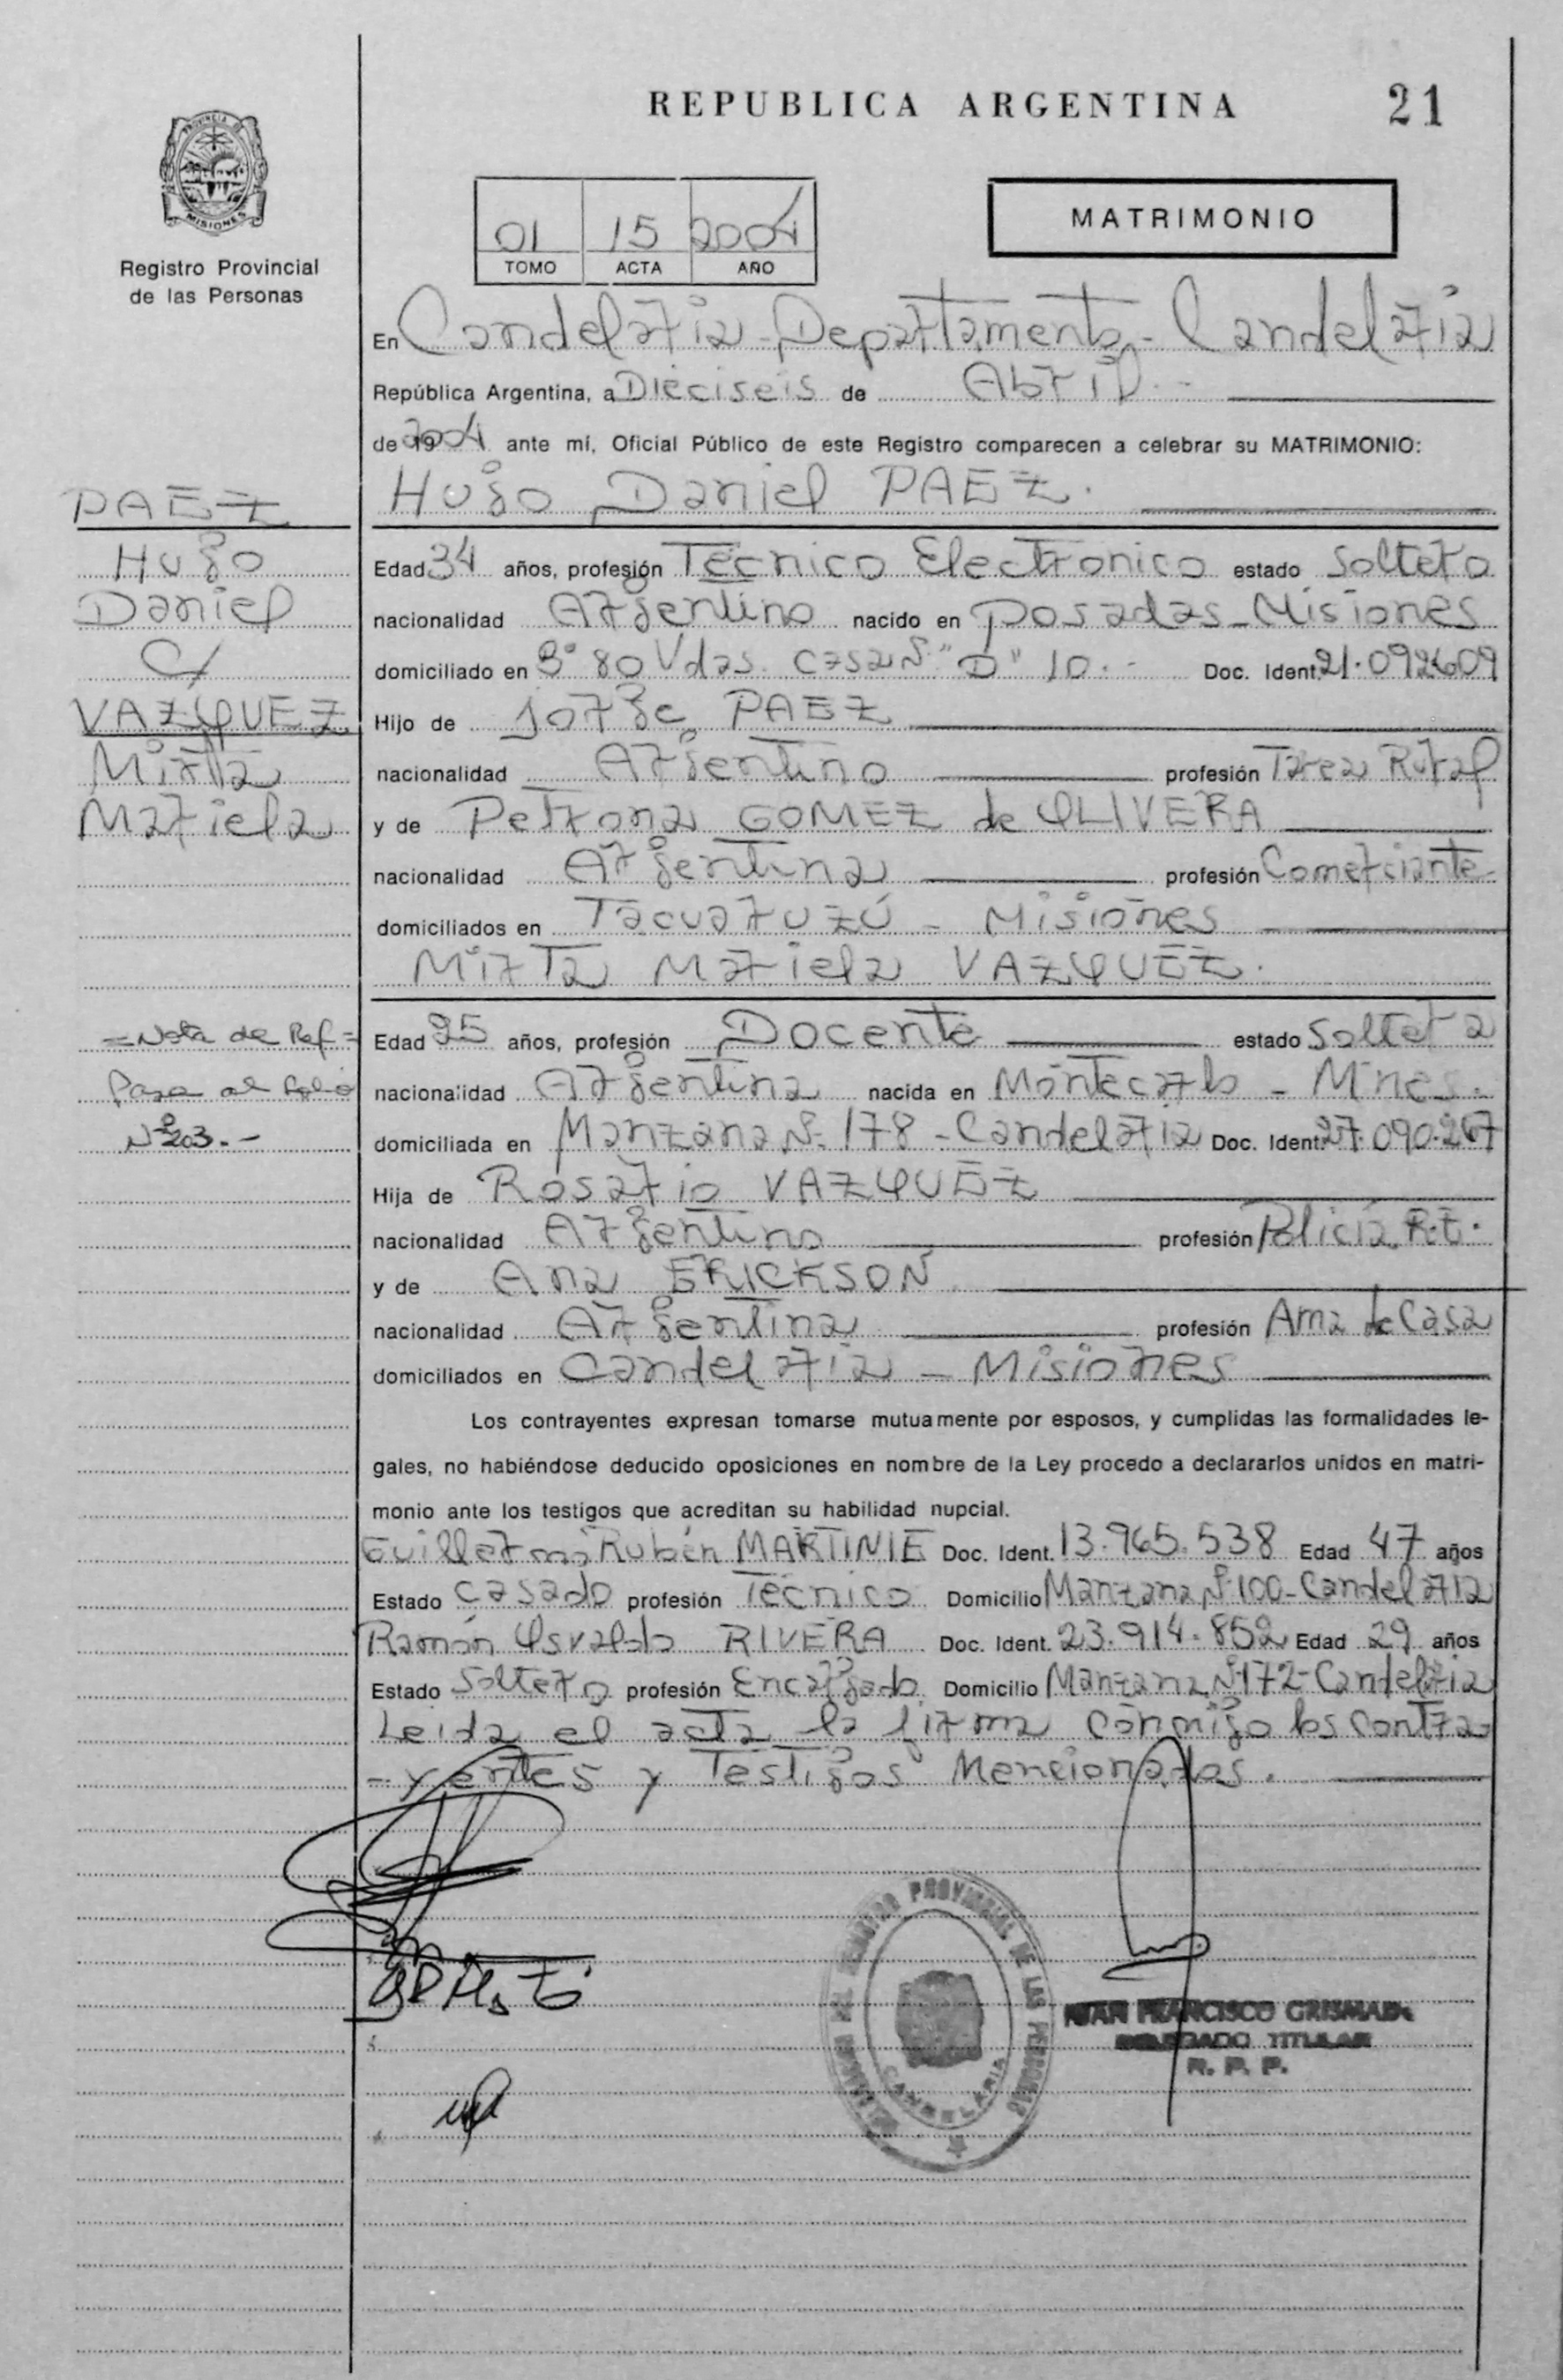 REPUBLICA ARGENTINA
21
PROVINCIA DE
MISIONES
Registro Provincial
de las Personas
01 15 2004
TOMO ACTA AÑO
MATRIMONIO
En Candelaria - Departamento - Candelaria
República Argentina, a Dieciseis de Abril
de 2004 ante mí, Oficial Público de este Registro comparecen a celebrar su MATRIMONIO:
Hugo Daniel PAEZ.
PAEZ
Hugo
Daniel
C/
VAZQUEZ
Mirta
Mariela
=Nota de Ref=
Pasa al folio
Nº203.-
Edad 34 años, profesión Técnico Electronico estado Soltero
nacionalidad Argentino nacido en Posadas - Misiones
domiciliado en Bº 80 Vdas. Casa Nº "D" 10.- Doc. Ident. 21.092609
Hijo de Jorge PAEZ
nacionalidad Argentino profesión Tarea Rural
y de Petrona GOMEZ de OLIVERA
nacionalidad Argentina profesión Comerciante
domiciliados en Tacuaruzú - Misiones
Mirta Mariela VAZQUEZ.
Edad 25 años, profesión Docente estado Soltera
nacionalidad Argentina nacida en Montecarlo - Mnes.
domiciliada en Manzana Nº 178 - Candelaria Doc. Ident. 27.090.267
Hija de Rosario VAZQUEZ
nacionalidad Argentino profesión Policía Rt.
y de Ana ERICKSON
nacionalidad Argentina profesión Ama de Casa
domiciliados en Candelaria - Misiones
Los contrayentes expresan tomarse mutuamente por esposos, y cumplidas las formalidades le-
gales, no habiéndose deducido oposiciones en nombre de la Ley procedo a declararlos unidos en matri-
monio ante los testigos que acreditan su habilidad nupcial.
Guillermo Rubén MARTINIE Doc. Ident. 13.965.538 Edad 47 años
Estado Casado profesión Técnico Domicilio Manzana Nº 100 - Candelaria
Ramón Osvaldo RIVERA Doc. Ident. 23.914.852 Edad 29 años
Estado Soltero profesión Encargado Domicilio Manzana Nº 172 - Candelaria
Leida el acta la firma conmigo los contra-
-yentes y Testigos Mencionados.
REGISTRO PROVINCIAL DE LAS PERSONAS
CANDELARIA
JUAN FRANCISCO
DELEGADO TITULAR
R. P. P.